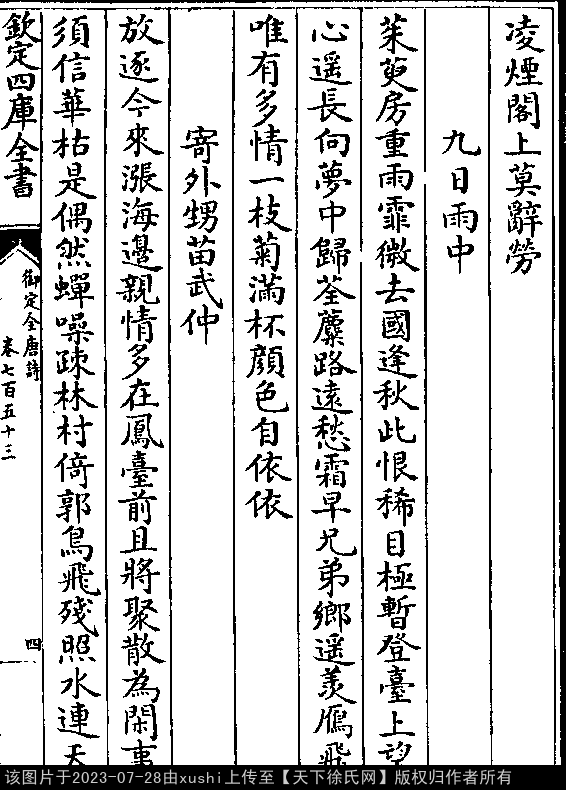 凌煙閣上莫辭勞
九日雨中
茱萸房重雨霏微去國逢秋此恨稀目極暫登臺上望
心遥長向夢中歸荃蘪路遠愁霜早兄弟鄉遥羨鴈飛
唯有多情一枝菊滿杯顔色自依依
寄外甥苗武仲
放逐今來漲海邊親情多在鳳臺前且將聚散為閑事
須信華枯是偶然蟬噪疎林村倚郭鳥飛殘照水連天
欽定四庫全書
御定全唐詩
卷七百五十三
四
该图片于2023-07-28由xushi上传至【天下徐氏网】版权归作者所有